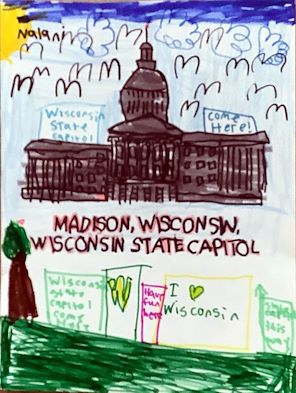 Nalani
Wisconsin
State
capitol
Come
Here!
MADISON, WISCONSIN,
WISCONSIN STATE CAPITOL
Wisconsin
state
capitol
come
Here
W
Have
fun
here
I
Wisconsin
this
way